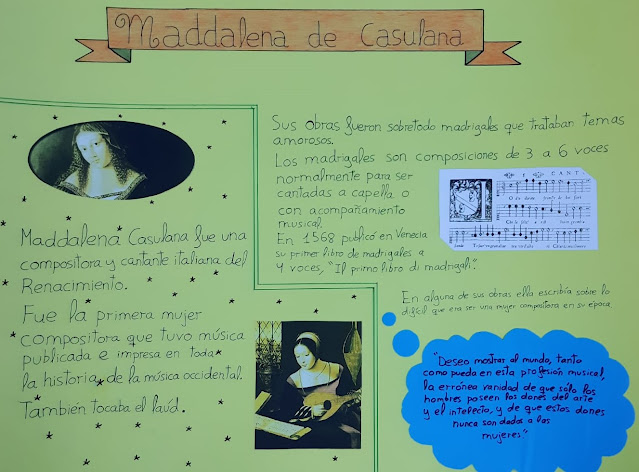 Maddalena de Casulana
Maddalena Casulana fue una
compositora y cantante italiana del
Renacimiento.
Fue la primera mujer
compositora que tuvo música
publicada e impresa en toda
la historia de la música occidental.
También tocaba el laúd.
Sus obras fueron sobretodo madrigales que trataban temas
amorosos.
Los madrigales son composiciones de 3 a 6 voces
normalmente para ser
cantadas a capella o
con acompañamiento
musical.
En 1568 publicó en Venecia
su primer libro de madrigales a
4 voces, "Il primo libro di madrigali".
CANT
En alguna de sus obras ella escribía sobre lo
difícil que era ser una mujer compositora en su época
"Deseo mostrar al mundo, tanto
como pueda en esta profesión musical,
la errónea vanidad de que sólo los
hombres poseen los dones del arte
y el intelecto, y de que estos dones
nunca son dados a las
mujeres"